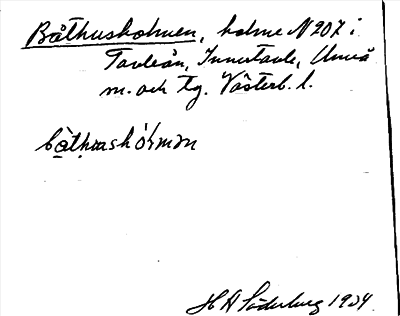 Båthusholmen, holme N 207 i
Tavleån, Innertavle, Umeå
m. och tg. Västerb. l.
båthushólmən
H A Söderberg 1934